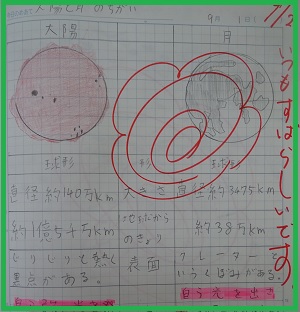 太陽と月のちがい
9月 1日
7/2
太陽
月
球形
形
球形
直径約140万km
大きさ
直径約3475km
約1億5千万km
ちきゅうからのきょり
約38万km
じりじりと熱し
黒点がある。
表面
クレーターと
いうくぼみがある。
自ら光を出さ
いつもすばらしいです